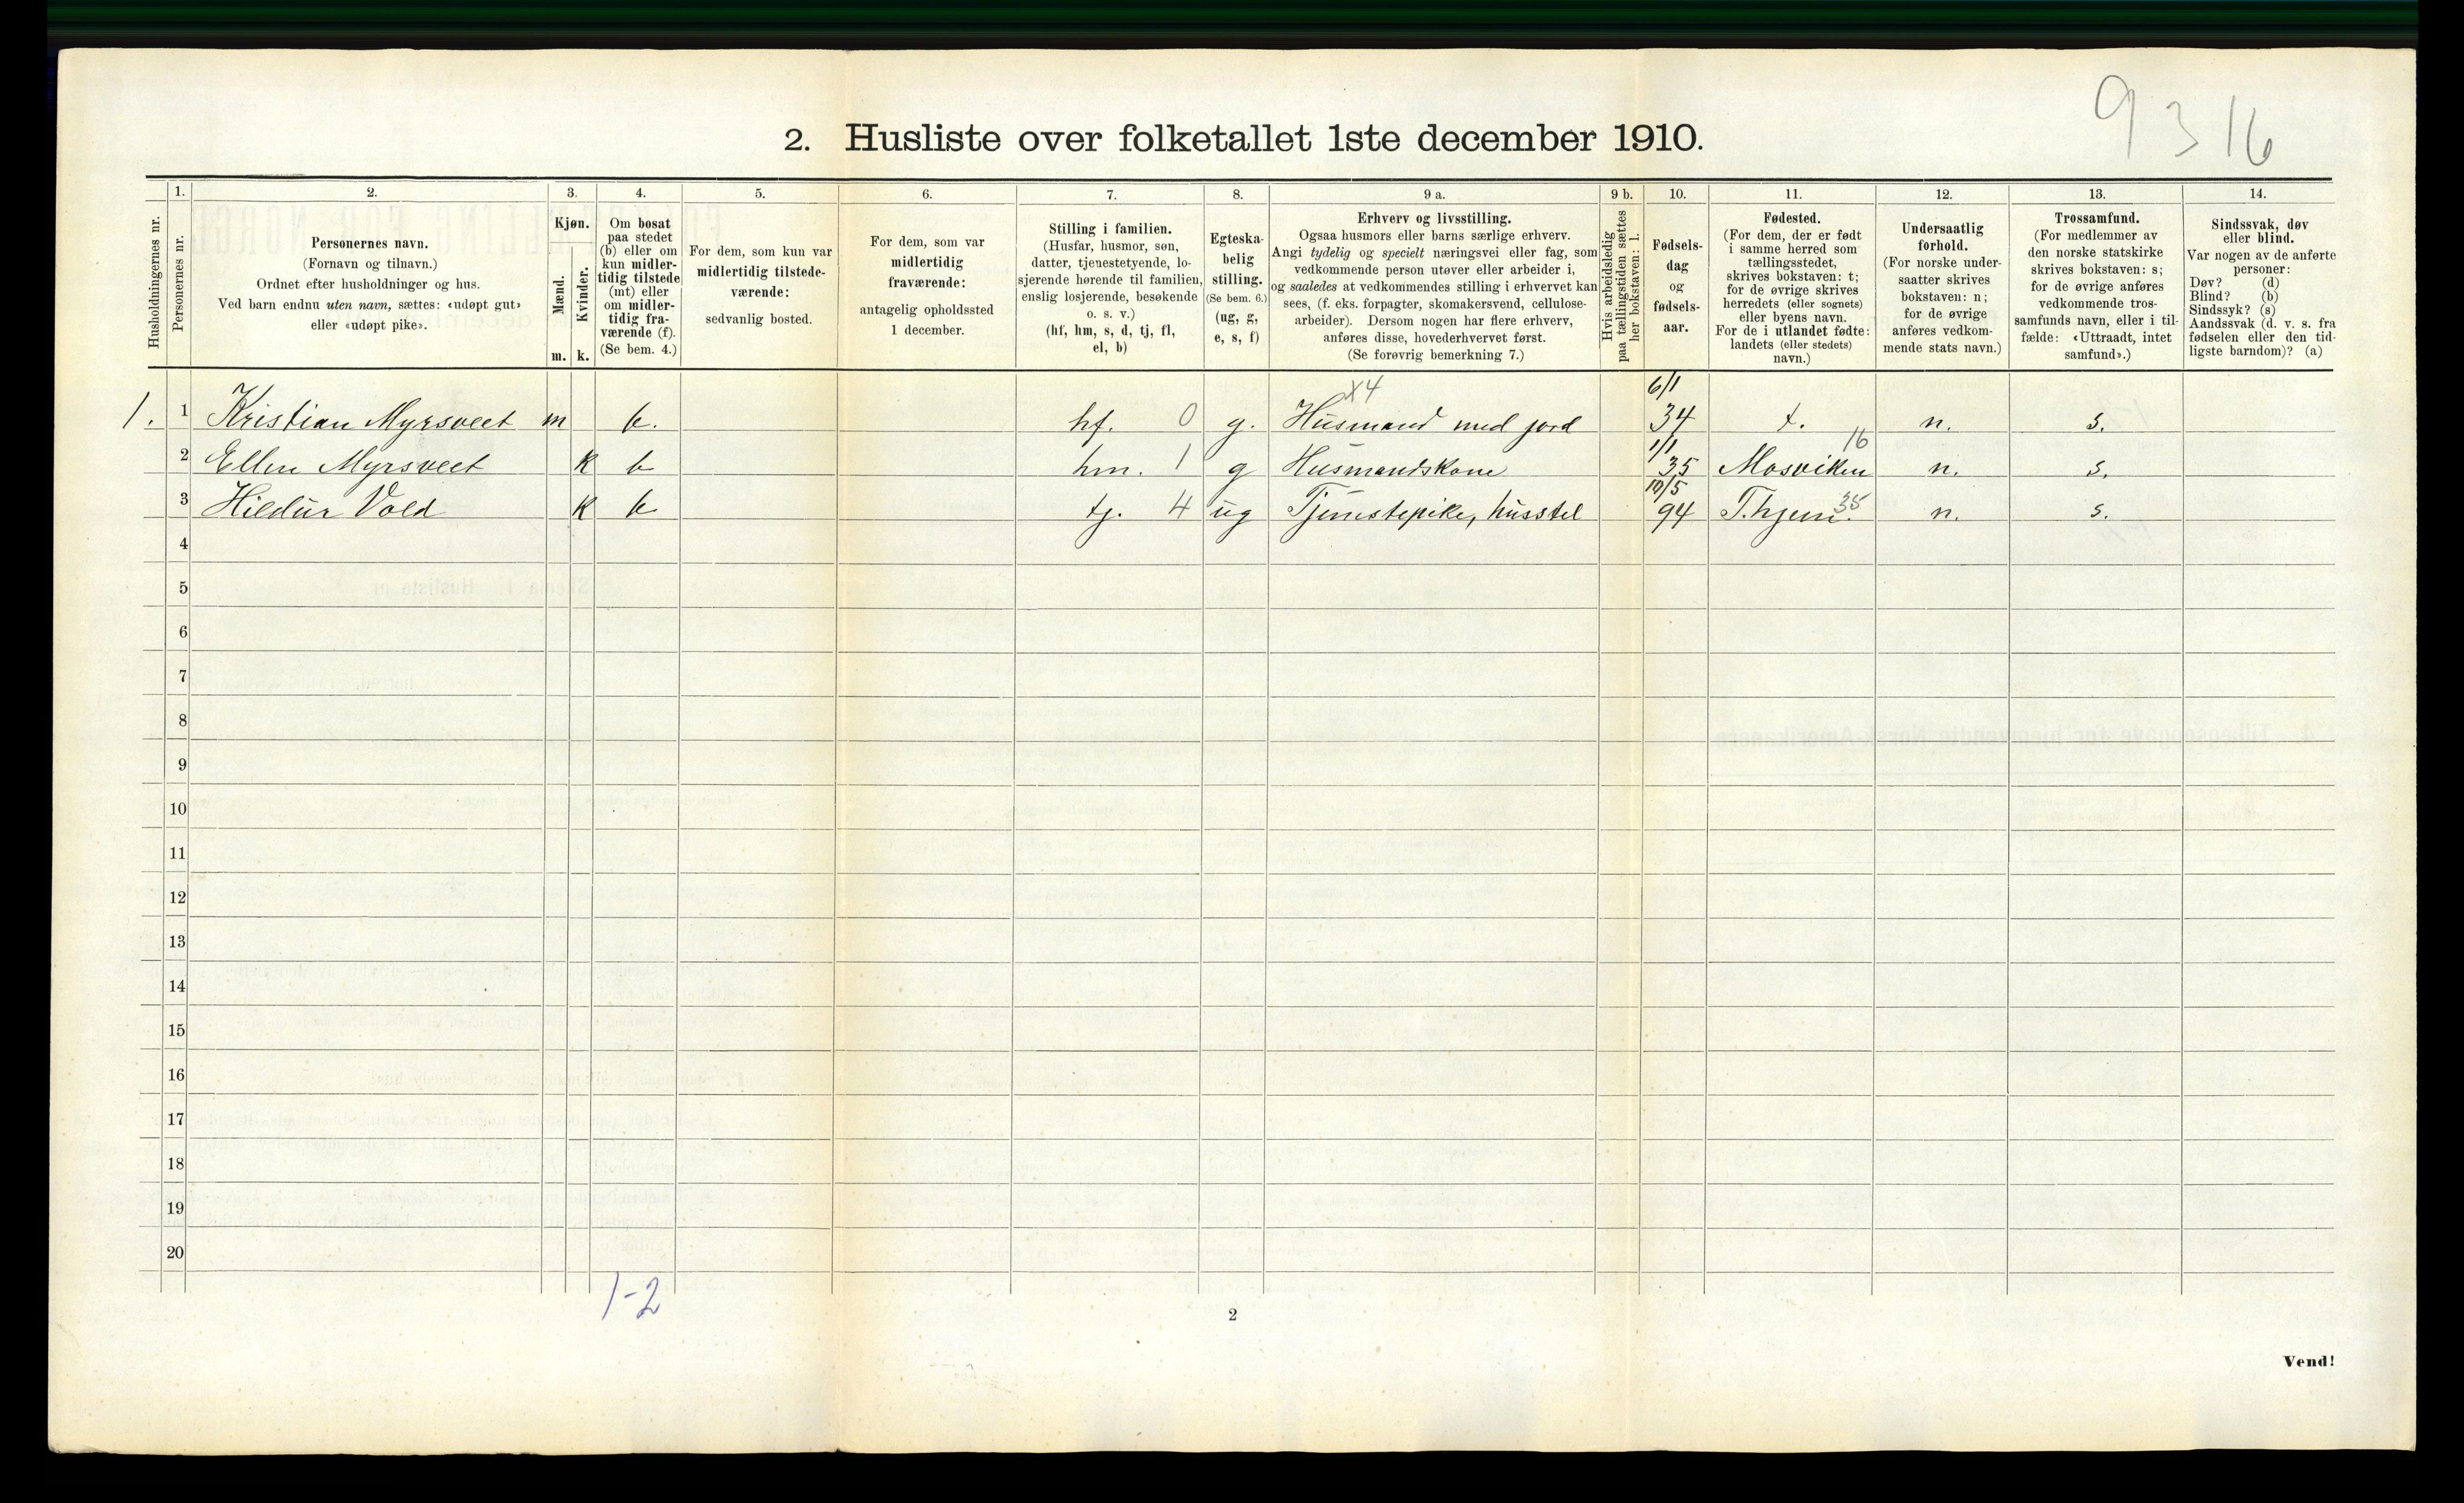 9 3 16
2. Husliste over folketallet 1ste december 1910.
Husholdningernes nr.
1.
Personernes nr.
2.
Personernes navn.
(Fornavn og tilnavn.)
Ordnet efter husholdninger og hus.
Ved barn endnu uten navn, sættes: «udøpt gut»
eller «udøpt pike».
3.
Kjøn.
Mænd.
Kvinder.
m. k.
4.
Om bosat
paa stedet
(b) eller om
kun midler-
tidig tilstede
(mt) eller
om midler-
tidig fra-
værende (f).
(Se bem. 4.)
5.
For dem, som kun var
midlertidig tilstede-
værende:
sedvanlig bosted.
6.
For dem, som var
midlertidig
fraværende:
antagelig opholdssted
1 december.
7.
Stilling i familien.
(Husfar, husmor, søn,
datter, tjenestetyende, lo-
sjerende hørende til familien,
enslig losjerende, besøkende
o. s. v.)
(hf, hm, s, d, tj, fl,
el, b)
8.
Egteska-
belig
stilling.
(Se bem. 6.)
(ug, g,
e, s, f)
9 a.
Erhverv og livsstilling.
Ogsaa husmors eller barns særlige erhverv.
Angi tydelig og specielt næringsvei eller fag, som
vedkommende person utøver eller arbeider i,
og saaledes at vedkommendes stilling i erhvervet kan
sees, (f. eks. forpagter, skomakersvend, cellulose-
arbeider). Dersom nogen har flere erhverv,
anføres disse, hovederhvervet først.
(Se forøvrig bemerkning 7.)
9 b.
Hvis arbeidsledig
paa tællingstiden sættes
her bokstaven: l.
10.
Fødsels-
dag
og
fødsels-
aar.
11.
Fødested.
(For dem, der er født
i samme herred som
tællingsstedet,
skrives bokstaven: t;
for de øvrige skrives
herredets (eller sognets)
eller byens navn.
For de i utlandet fødte:
landets (eller stedets)
navn.)
12.
Undersaatlig
forhold.
(For norske under-
saatter skrives
bokstaven: n;
for de øvrige
anføres vedkom-
mende stats navn.)
13.
Trossamfund.
(For medlemmer av
den norske statskirke
skrives bokstaven: s;
for de øvrige anføres
vedkommende tros-
samfunds navn, eller i til-
fælde: «Uttraadt, intet
samfund».)
14.
Sindssvak, døv
eller blind.
Var nogen av de anførte
personer:
Døv? (d)
Blind? (b)
Sindssyk? (s)
Aandssvak (d. v. s. fra
fødselen eller den tid-
ligste barndom)? (a)
X4 6/1
1. 1 Kristian Myrsveet m b. hf. 0 g. Husmand med jord 34 t. n. s.
1/1 16
2 Ellen Myrsveet k b hm. 1 g Husmandskone 35 Mosviken n. s.
10/5 35
3 Hildur Vold k b tj. 4 ug Tjenestepike, husstel 94 T.hjem. n. s.
4
5
6
7
8
9
10
11
12
13
14
15
16
17
18
19
20
1-2
2
Vend!